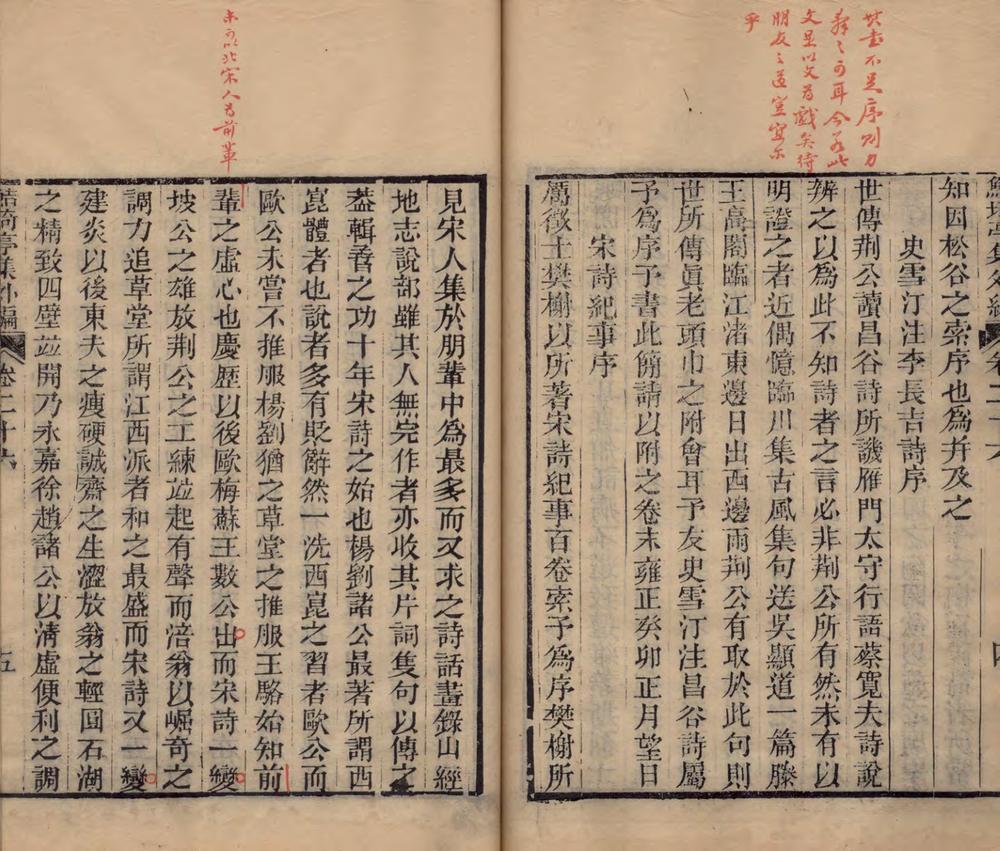 其書不足序則力
辭之可耳今若此
文是以文為戲矣待
朋友之道豈宜爾
乎
知因松谷之索序也爲并及之
史雪汀注李長吉詩序
世傳荆公讀昌谷詩所譏雁門太守行語蔡寬夫詩說
辨之以爲此不知詩者之言必非荆公所有然未有以
明證之者近偶憶臨川集古風集句送吳顯道一篇滕
王高閣臨江渚東邊日出西邊雨荆公有取於此句則
世所傳眞老頭巾之附會耳予友史雪汀注昌谷詩屬
予爲序予書此篇請以附之卷末雍正癸卯正月望日
宋詩紀事序
厲徵士樊榭以所著宋詩紀事百卷索予爲序樊榭所
未可以北宋人為前輩
見宋人集於朋輩中爲最多而又求之詩話畫錄山經
地志說部雖其人無完作者亦收其片詞隻句以傳之
葢輯香之功十年宋詩之始也楊劉諸公最著所謂西
崑體者也說者多有貶辭然一洗西崑之習者歐公而
歐公未嘗不推服楊劉猶之草堂之推服王駱始知前
輩之虛心也慶歷以後歐梅蘇王數公出而宋詩一變
坡公之雄放荆公之工練竝起有聲而涪翁以崛奇之
調力追草堂所謂江西派者和之最盛而宋詩又一變
建炎以後東夫之瘦硬誠齋之生澀放翁之輕圓石湖
之精致四壁竝開乃永嘉徐趙諸公以清虛便利之調
鮚埼亭集外編 卷二十六 五